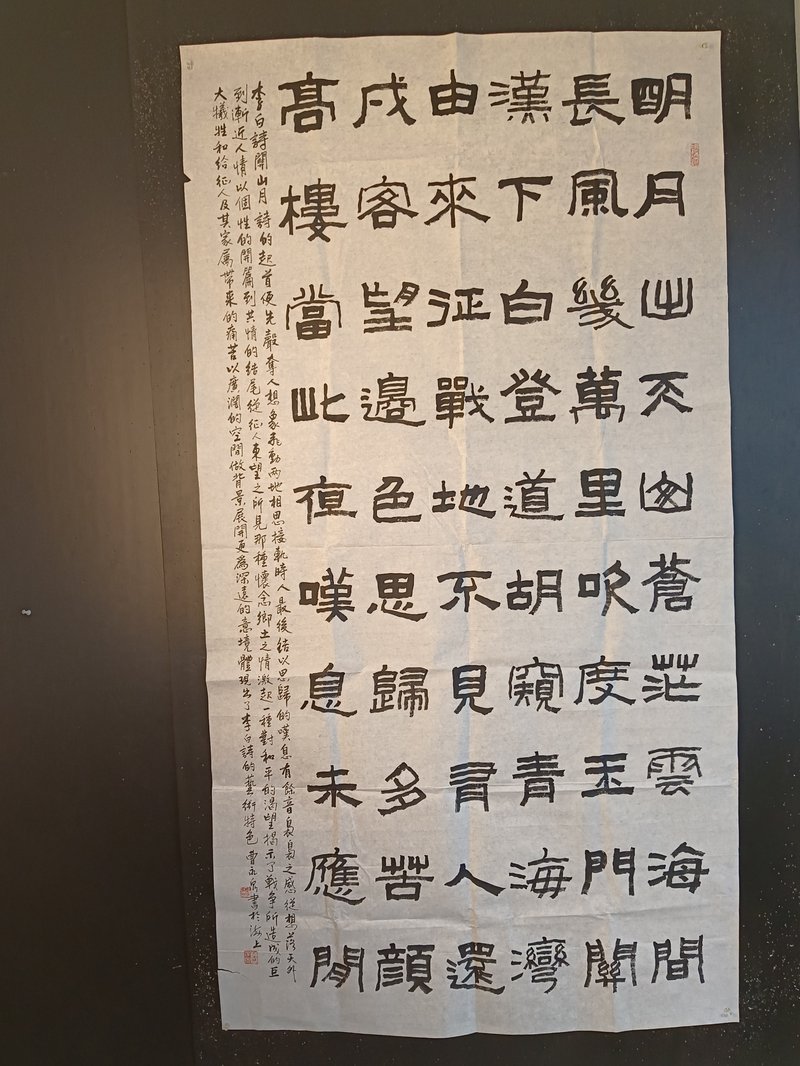 明月出天山蒼茫雲海間
長風幾萬里吹度玉門關
漢下白登道胡窺青海灣
由來征戰地不見有人還
戍客望邊色思歸多苦顏
高樓當此夜嘆息未應閒
李白詩關山月詩的起首便先聲奪人想象飛動兩地相思接軌時人最後結以思歸的嘆息有餘音裊裊之感從想落天外
到漸近人情以個性的開篇到共情的結尾從征人東望之所見那種懷念鄉土之情激起一種對和平的渴望揭示了戰爭所造成的巨
大犧牲和給征人及其家屬帶來的痛苦以廣濶的空間做背景展開更為深遠的意境體現出了李白詩的藝術特色 曹 書於海上